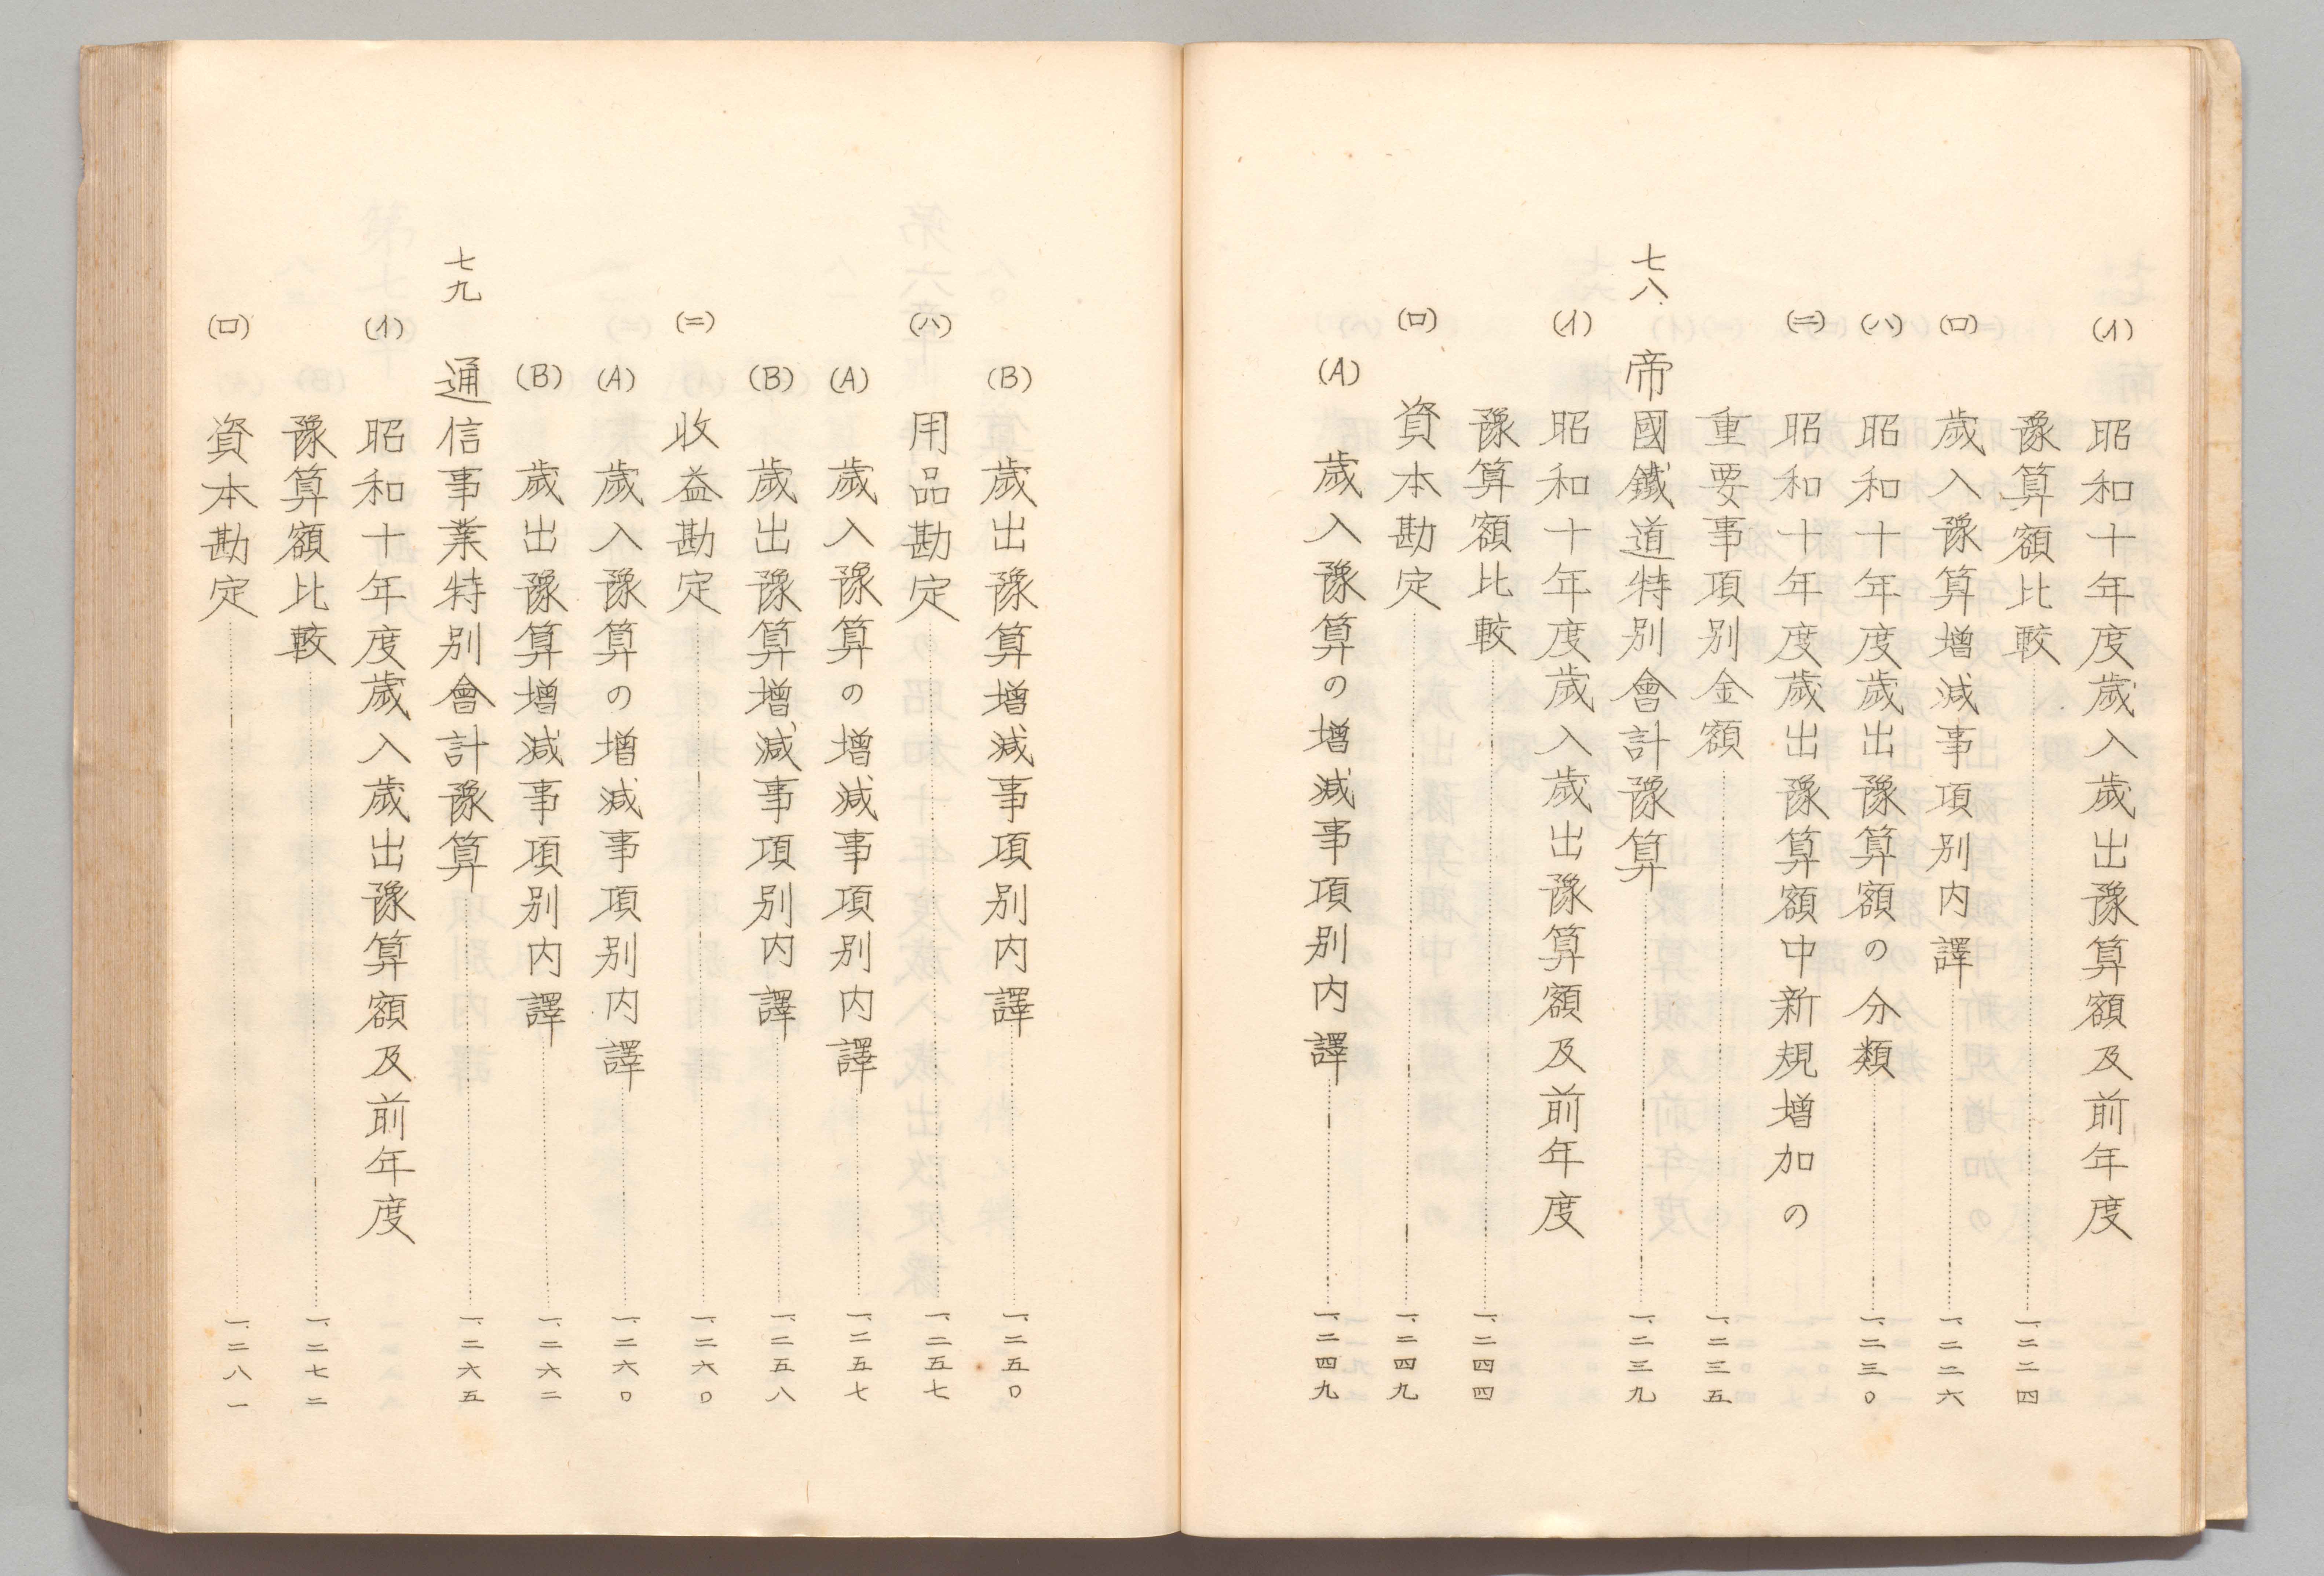 (イ) 昭和十年度歳入歳出豫算額及前年度
豫算額比較 一、二二四
(ロ) 歳入豫算増減事項別内譯 一、二二六
(ハ) 昭和十年度歳出豫算額の分類 一、二三〇
(ニ) 昭和十年度歳出豫算額中新規増加の
重要事項別金額 一、二三五
七八 帝國鐵道特別會計豫算 一、二三九
(イ) 昭和十年度歳入歳出豫算額及前年度
豫算額比較 一、二四四
(ロ) 資本勘定 一、二四九
(A) 歳入豫算の増減事項別内譯 一、二四九
(B) 歳出豫算増減事項別内譯 一、二五〇
(ハ) 用品勘定 一、二五七
(A) 歳入豫算の増減事項別内譯 一、二五七
(B) 歳出豫算増減事項別内譯 一、二五八
(ニ) 收益勘定 一、二六〇
(A) 歳入豫算の増減事項別内譯 一、二六〇
(B) 歳出豫算増減事項別内譯 一、二六二
七九 通信事業特別會計豫算 一、二六五
(イ) 昭和十年度歳入歳出豫算額及前年度
豫算額比較 一、二七二
(ロ) 資本勘定 一、二八一